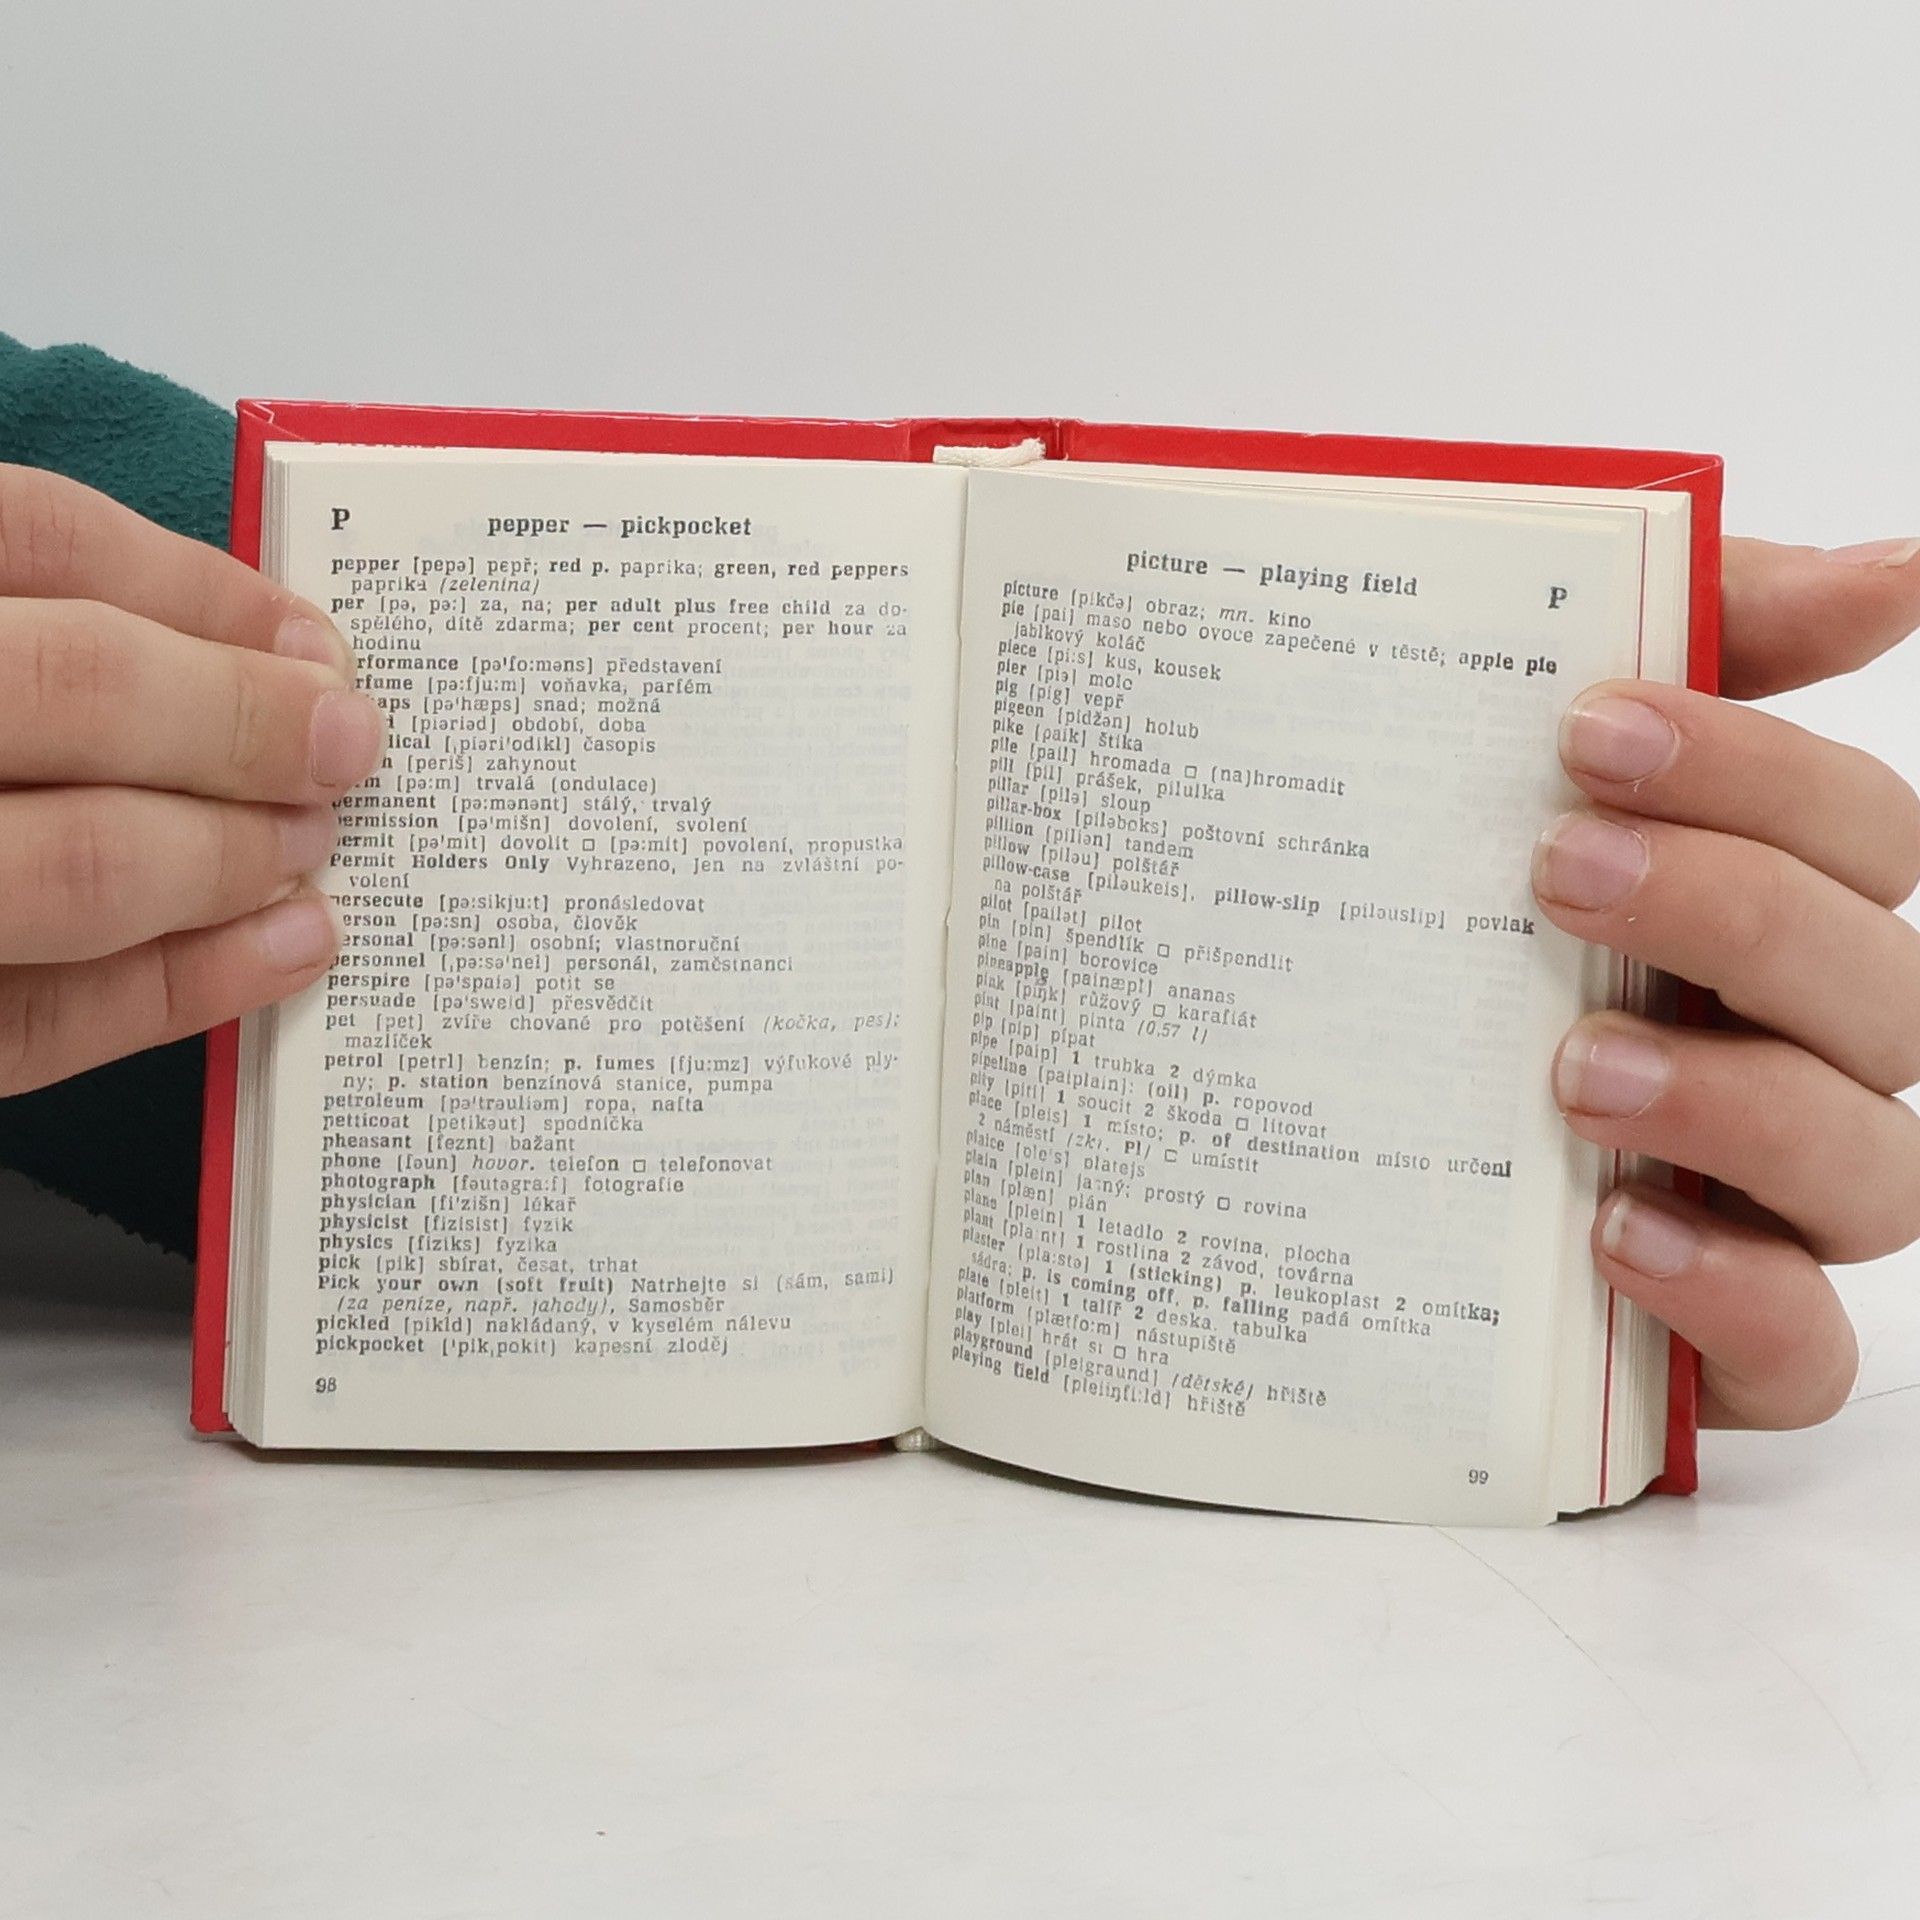 P
pepper — pickpocket
pepper [pepə] pepř; red p. paprika; green, red peppers
paprika (zelenina)
per [pə, pə:] za, na; per adult plus free child za do-
spělého, dítě zdarma; per cent procent; per hour za
hodinu
rformance [pə'fo:məns] představení
rfume [pə:fju:m] voňavka, parfém
haps [pə'hæps] snad; možná
d [piəriəd] období, doba
dical [ˌpiəri'odikl] časopis
h [periš] zahynout
rm [pə:m] trvalá (ondulace)
permanent [pə:mənənt] stálý, trvalý
permission [pə'mišn] dovolení, svolení
permit [pə'mit] dovolit □ [pə:mit] povolení, propustka
Permit Holders Only Vyhrazeno, jen na zvláštní po-
volení
persecute [pə:sikju:t] pronásledovat
person [pə:sn] osoba, člověk
personal [pə:sənl] osobní; vlastnoruční
personnel [ˌpə:sə'nel] personál, zaměstnanci
perspire [pə'spaiə] potit se
persuade [pə'sweid] přesvědčit
pet [pet] zvíře chované pro potěšení (kočka, pes);
mazlíček
petrol [petrl] benzín; p. fumes [fju:mz] výfukové ply-
ny; p. station benzínová stanice, pumpa
petroleum [pə'trəuliəm] ropa, nafta
petticoat [petikəut] spodnička
pheasant [feznt] bažant
phone [fəun] hovor. telefon □ telefonovat
photograph [fəutəgra:f] fotografie
physician [fi'zišn] lékař
physicist [fizisist] fyzik
physics [fiziks] fyzika
pick [pik] sbírat, česat, trhat
Pick your own (soft fruit) Natrhejte si (sám, sami)
(za peníze, např. jahody), Samosběr
pickled [pikld] nakládaný, v kyselém nálevu
pickpocket ['pikˌpokit] kapesní zloděj
98
picture — playing field
P
picture [pikčə] obraz; mn. kino
pie [pai] maso nebo ovoce zapečené v těstě; apple pie
jablkový koláč
piece [pi:s] kus, kousek
pier [piə] molo
pig [pig] vepř
pigeon [pidžən] holub
pike [paik] štika
pile [pail] hromada □ (na)hromadit
pill [pil] prášek, pilulka
pillar [pilə] sloup
pillar-box [piləboks] poštovní schránka
pillion [piliən] tandem
pillow [piləu] polštář
pillow-case [piləukeis], pillow-slip [piləuslip] povlak
na polštář
pilot [pailət] pilot
pin [pin] špendlík □ přišpendlit
pine [pain] borovice
pineapple [painæpl] ananas
pink [piŋk] růžový □ karafiát
pint [paint] pinta (0,57 l)
pip [pip] pípat
pipe [paip] 1 trubka 2 dýmka
pipeline [paiplain]: (oil) p. ropovod
pity [piti] 1 soucit 2 škoda □ litovat
place [pleis] 1 místo; p. of destination místo určení
2 náměstí (zkr. Pl) □ umístit
plaice [pleis] platejs
plain [plein] jasný; prostý □ rovina
plan [plæn] plán
plane [plein] 1 letadlo 2 rovina, plocha
plant [pla:nt] 1 rostlina 2 závod, továrna
plaster [pla:stə] 1 (sticking) p. leukoplast 2 omítka;
sádra; p. is coming off, p. falling padá omítka
plate [pleit] 1 talíř 2 deska, tabulka
platform [plætfo:m] nástupiště
play [plei] hrát si □ hra
playground [pleigraund] (dětské) hřiště
playing field [pleiiŋfi:ld] hřiště
99